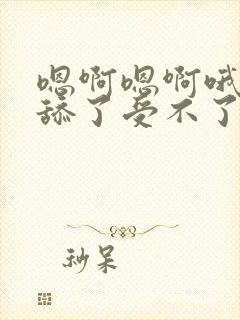 嗯啊嗯啊哦
舔了受不了
秒呆